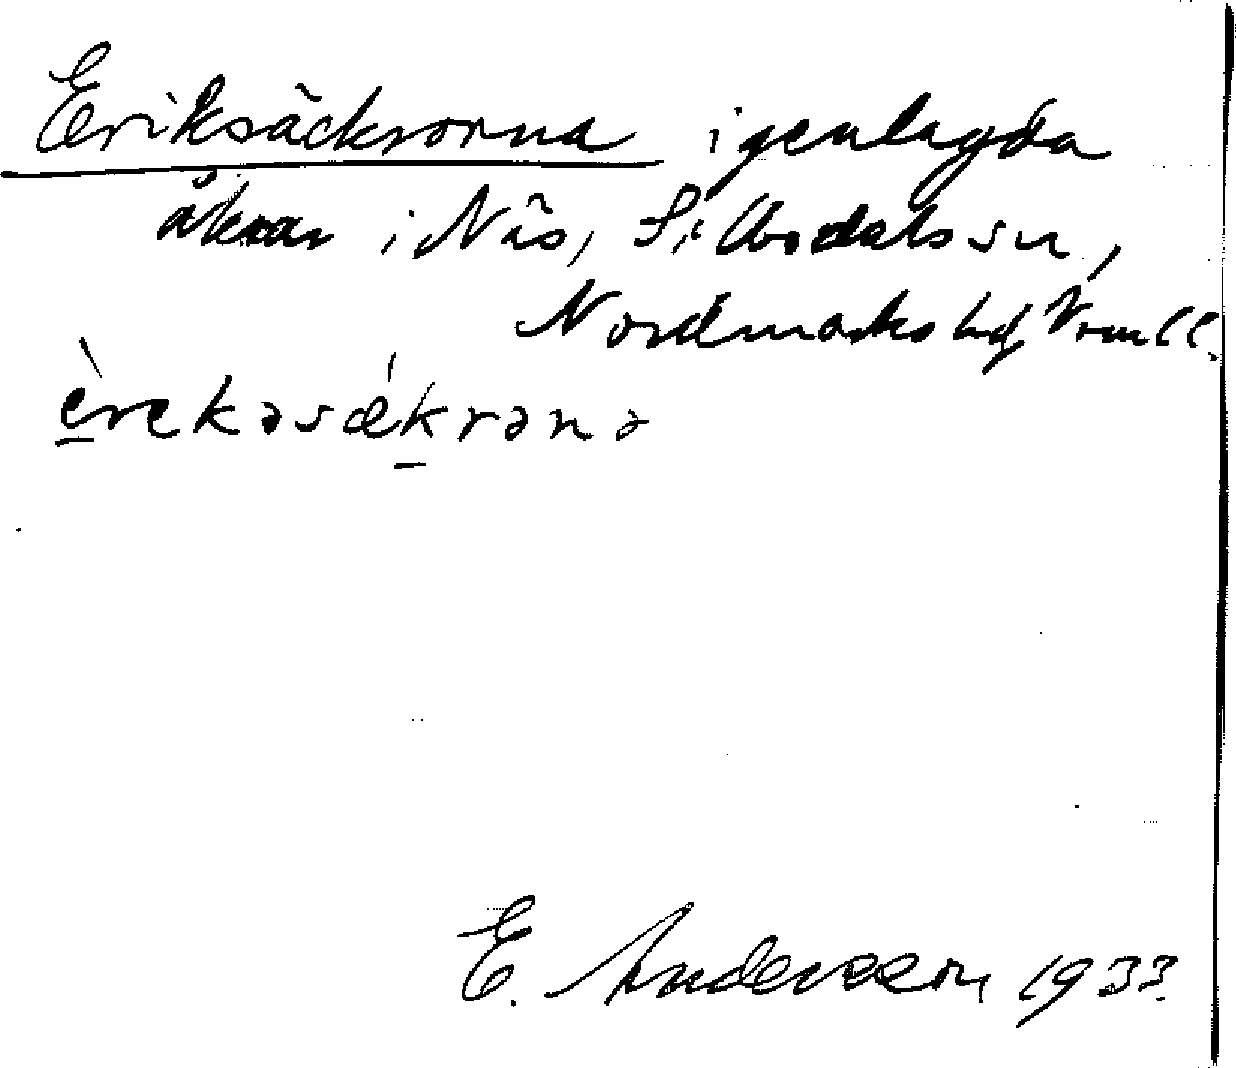 Eriksäckrorna igenlagda
åkrar i Näs, Sillbodals sn,
Nordmarks hd, Vrml.
èrekəsǽkrənə
E. Andersson 1933.